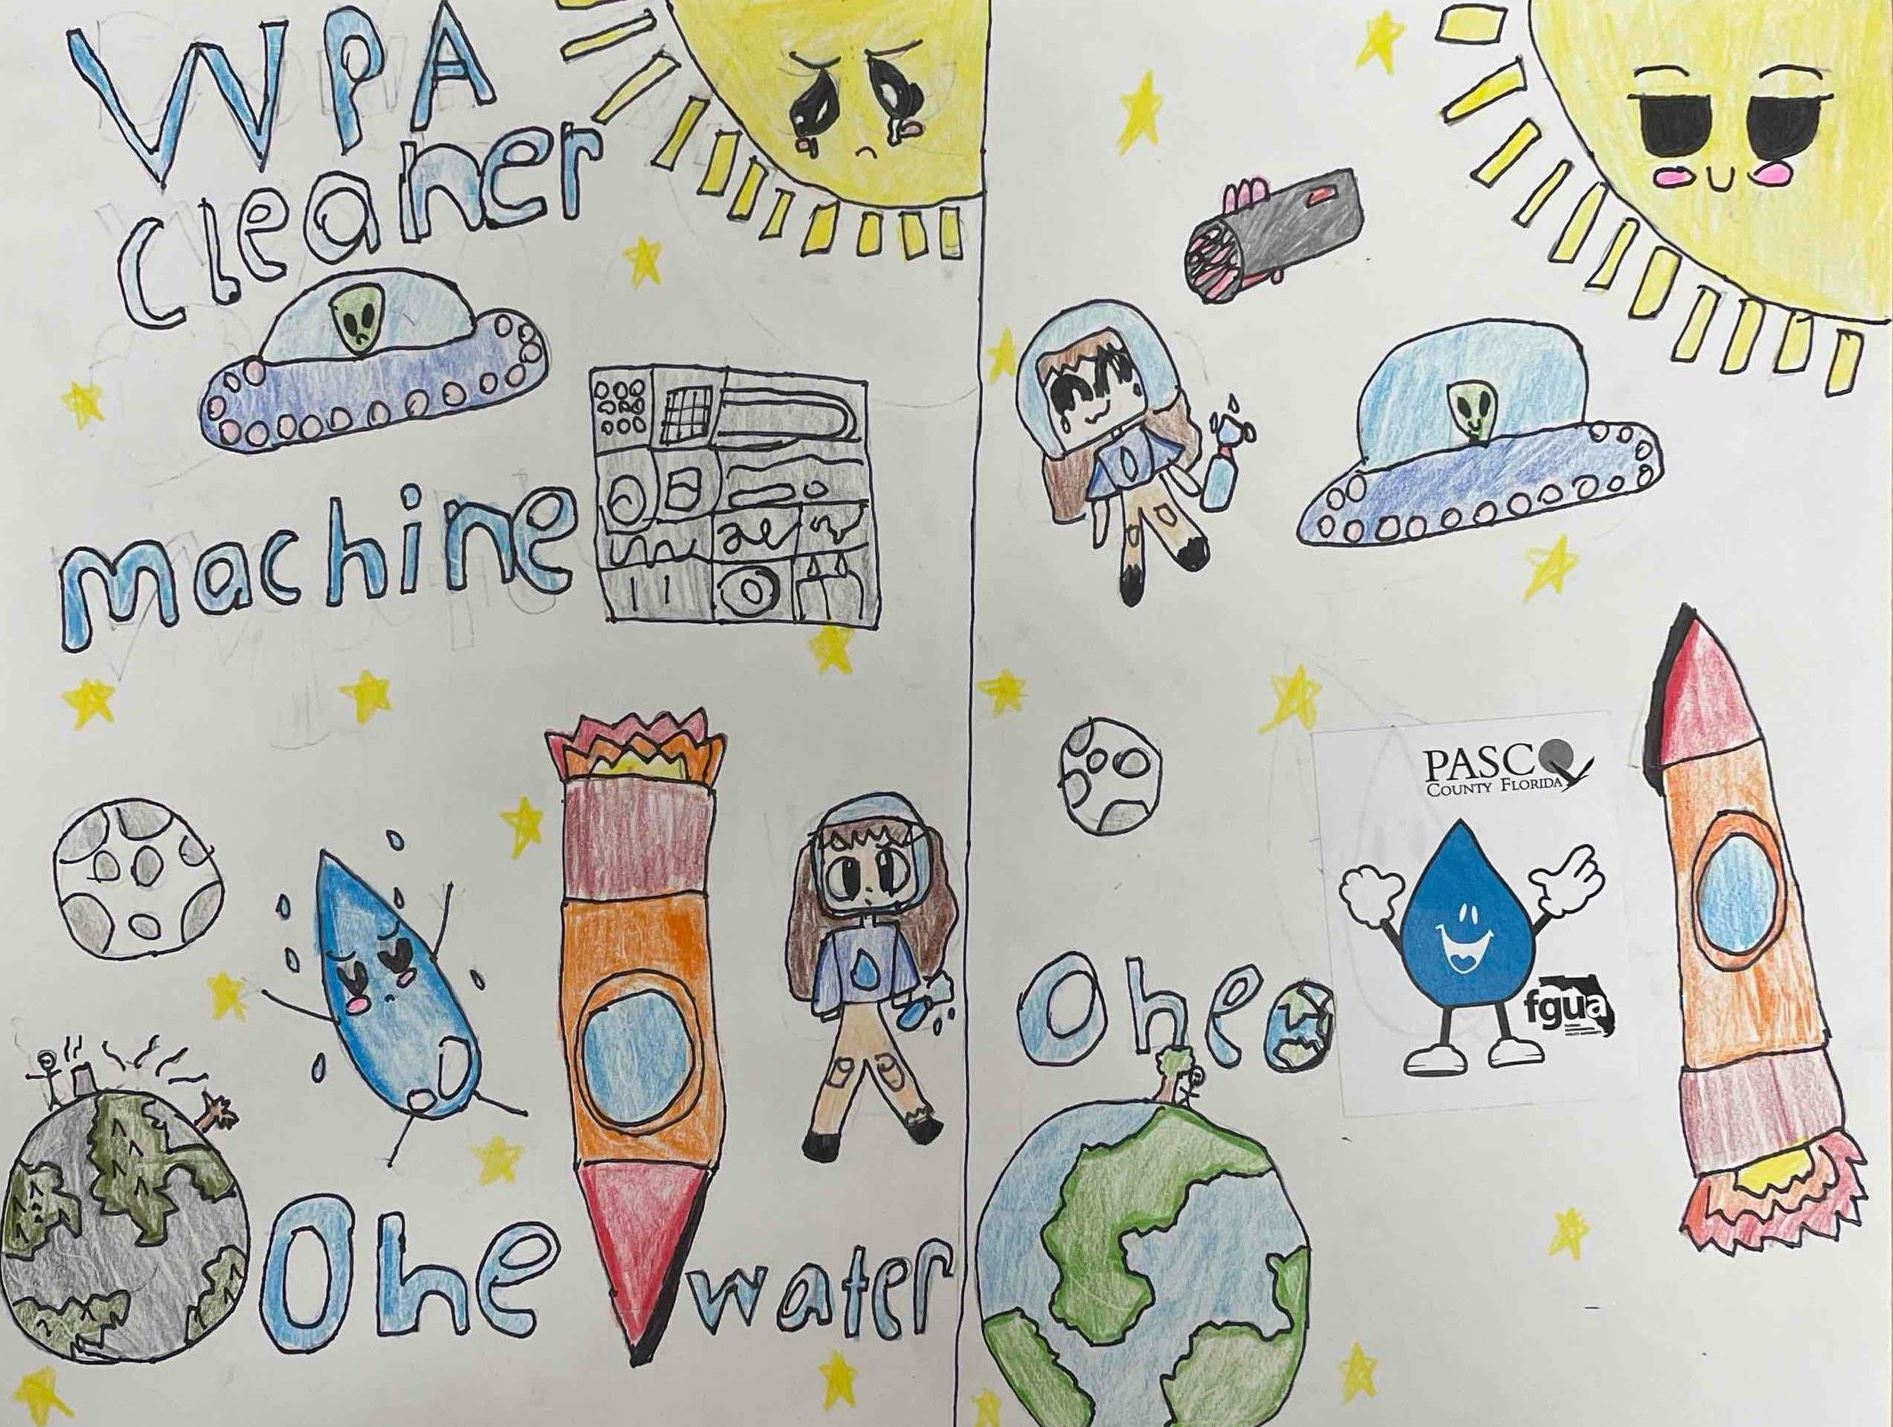 WPA
Cleaner
machine
One water
PASCO
COUNTY FLORIDA
One
fgua